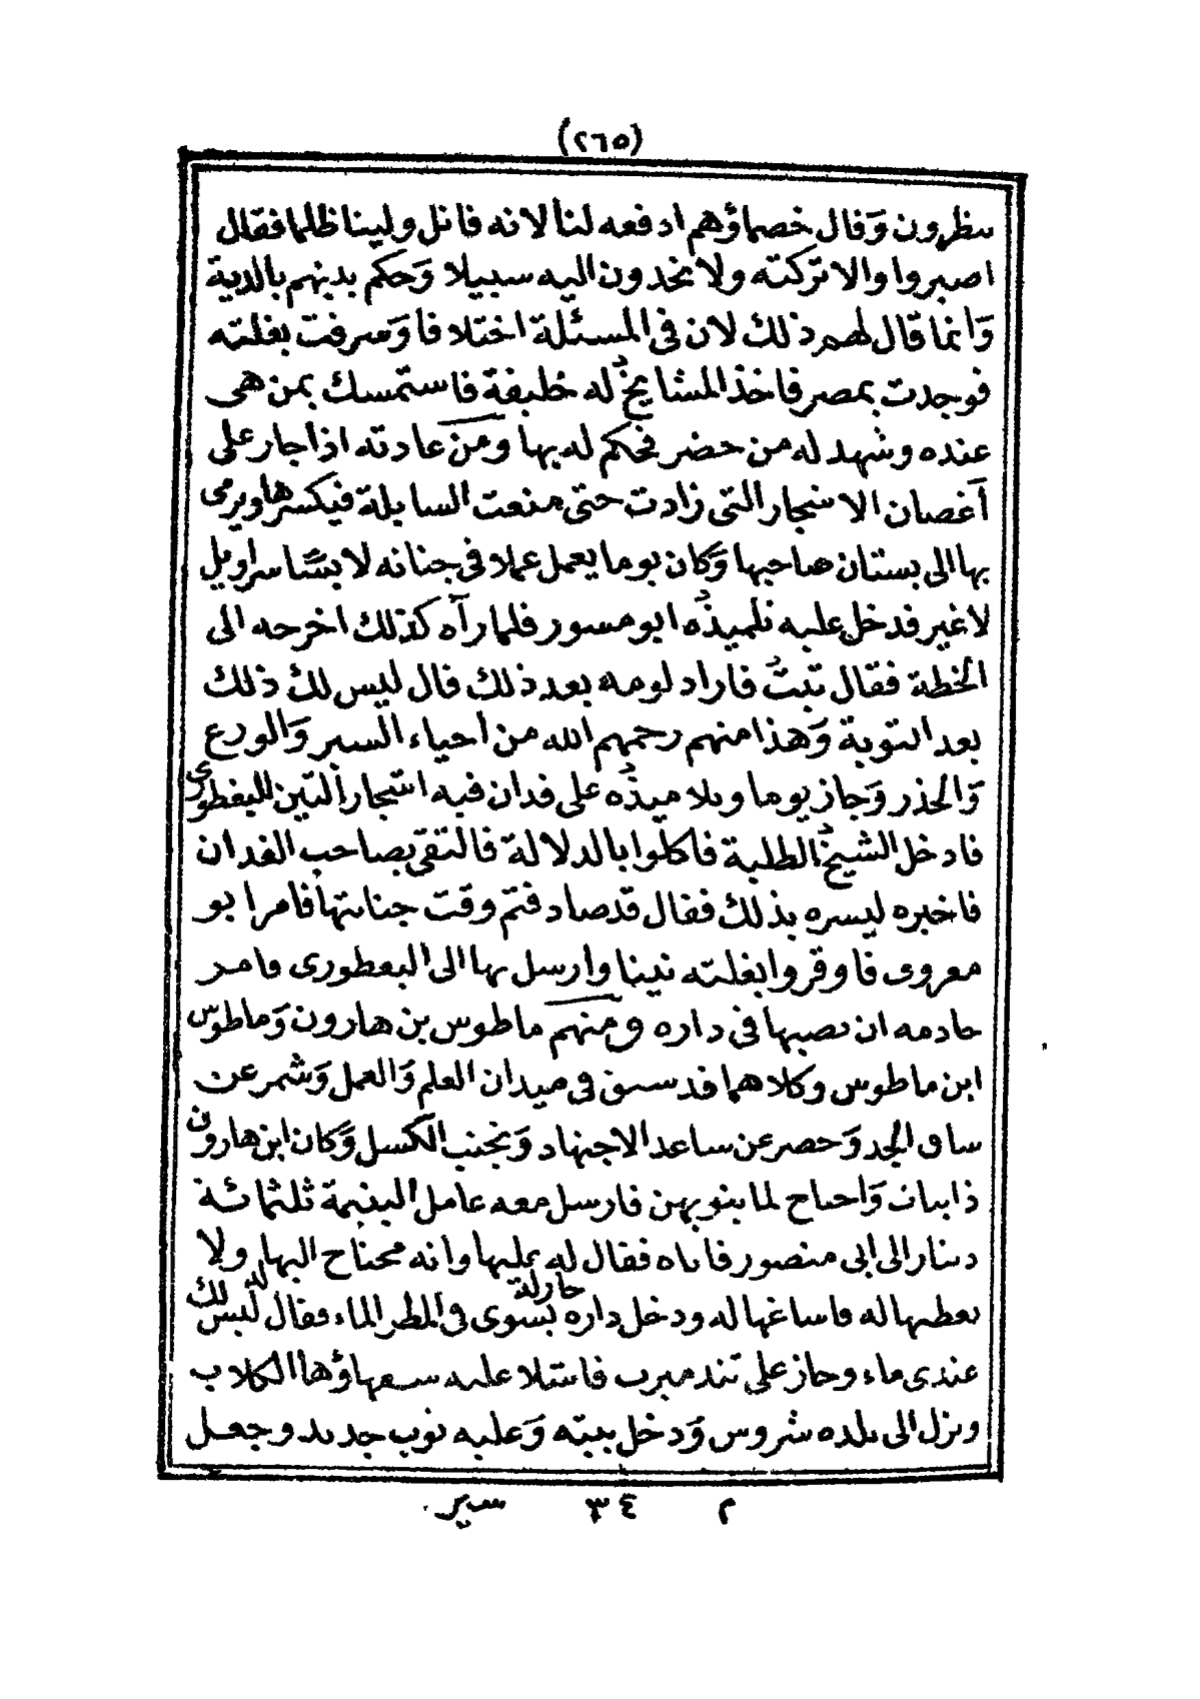 (٢٦٥)
ينظرون وقال خصماؤهم ادفعه لنا لانه قاتل ولينا ظلما فقال
اصبروا والا تركته ولا تجدون اليه سبيلا وحكم بينهم بالدية
وانما قال لهم ذلك لان في المسئلة اختلافا وسرقت بغلته
فوجدت بمصر فاخذ المشايخ له خليفة فاستمسك بمن هي
عنده وشهد له من حضر فحكم له بها ومن عادته اذا جاز على
أغصان الاشجار التي زادت حتى منعت السابلة فيكسرها ويرمى
بها الى بستان صاحبها وكان يوما يعمل عملا في جنانه لابسا سراويل
لا غير فدخل عليه تلميذه ابو مسور فلما رآه كذلك اخرجه الى
الخطة فقال تبت فاراد لومه بعد ذلك قال ليس لك ذلك
بعد التوبة وهذا منهم رحمهم الله من احياء السير والورع
والحذر وجاز يوما وتلاميذه على فدان فيه اشجار التين لليفطورى
فادخل الشيخ الطلبة فاكلوا بالدلالة فالتقى بصاحب الفدان
فاخبره ليسره بذلك فقال قد صادفتم وقت جنايتها فامر ابو
معروف فاوقروا بغلته تينا وارسل بها الى اليفطورى فامر
خادمه ان يصبها في داره ومنهم ماطوس بن هارون وماطوس
ابن ماطوس وكلاهما قد سبق في ميدان العلم والعمل وشمر عن
ساق الجد وحصر عن ساعد الاجتهاد وتجنب الكسل وكان ابن هارون
ذا بنات واحتاج لما ينوبهن فارسل معه عامل اليتيمة ثلثمائة
دينار الى ابى منصور فاتاه فقال له عليها وانه محتاج اليها ولا
يعطيها له فاساغها له ودخل داره جارية تسوى في المطر الماء فقال لها ليس لك
عندى ماء وجاز على تندميرت فاشلا عليه سفهاؤها الكلاب
ونزل الى بلده شروس ودخل بيته وعليه ثوب جديد وجعل
م ٣٤ سير